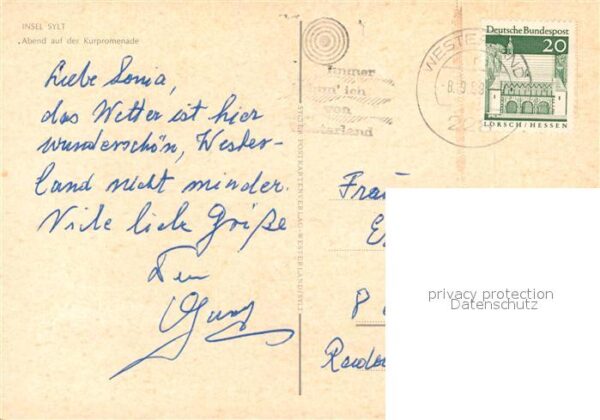 INSEL SYLT
„Abend auf der Kurpromenade
Liebe Sonia,
das Wetter ist hier
wunderschön, Wester-
land nicht minder.
Viele liebe Grüße
Dein
STICHER POSTKARTENVERLAG · WESTERLAND/SYLT
Immer
ich
von
Westerland
WESTERLAND
Deutsche Bundespost
20
LORSCH/HESSEN
Frau
privacy protection
Datenschutz